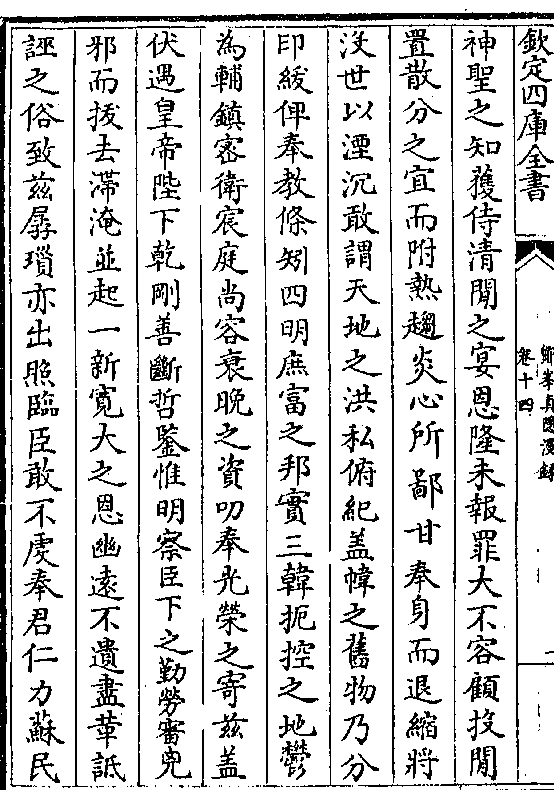 欽定四庫全書
鄮峯真隱漫録
卷十四
神聖之知獲侍清閒之宴恩隆未報罪大不容顧投閒
置散分之宜而附熱趨炎心所鄙甘奉身而退縮將
没世以湮沉敢謂天地之洪私俯紀蓋幃之舊物乃分
印綬俾奉教條矧四明庶富之邦實三韓扼控之地鬱
為輔鎮密衛宸庭尚容衰晚之資叨奉光榮之寄兹盖
伏遇皇帝陛下乾剛善斷哲鑒惟明察臣下之勤勞審兇
邪而拔去滯淹並起一新寛大之恩幽遠不遺盡革詆
誣之俗致兹孱瑣亦出照臨臣敢不虔奉君仁力蘇民